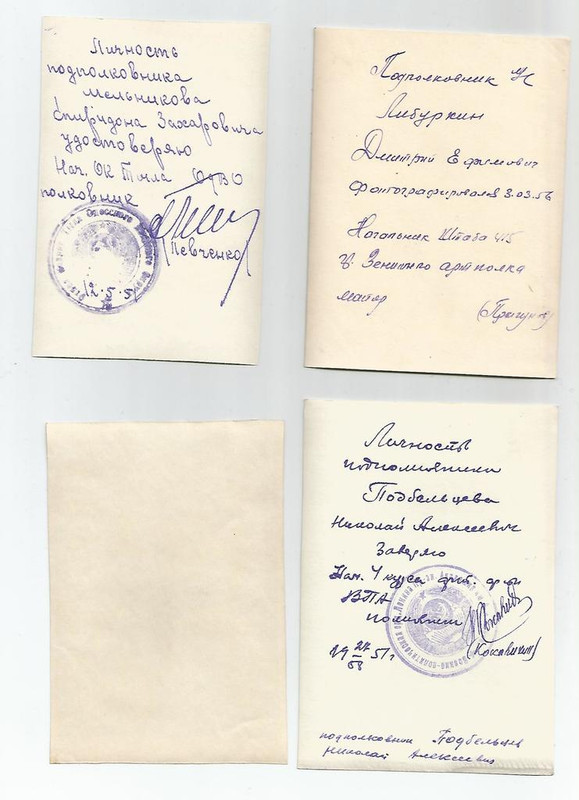 Личность
подполковника
Мельникова
Спиридона Захаровича
удостоверяю
Нач. ОК Тыла ОдВО
полковник
Певченко
12.5.5
Подполковник
Либуркин
Дмитрий Ефимович
фотографировался 3.03.56
Начальник Штаба 415
Зенитного артполка
майор
Личность
подполковника
Подбельцева
Николай Алексеевич
Заверяю
Нач. 4 курса
ВПА
полковник
51г
подполковник Подбельцев
Николай Алексеевич